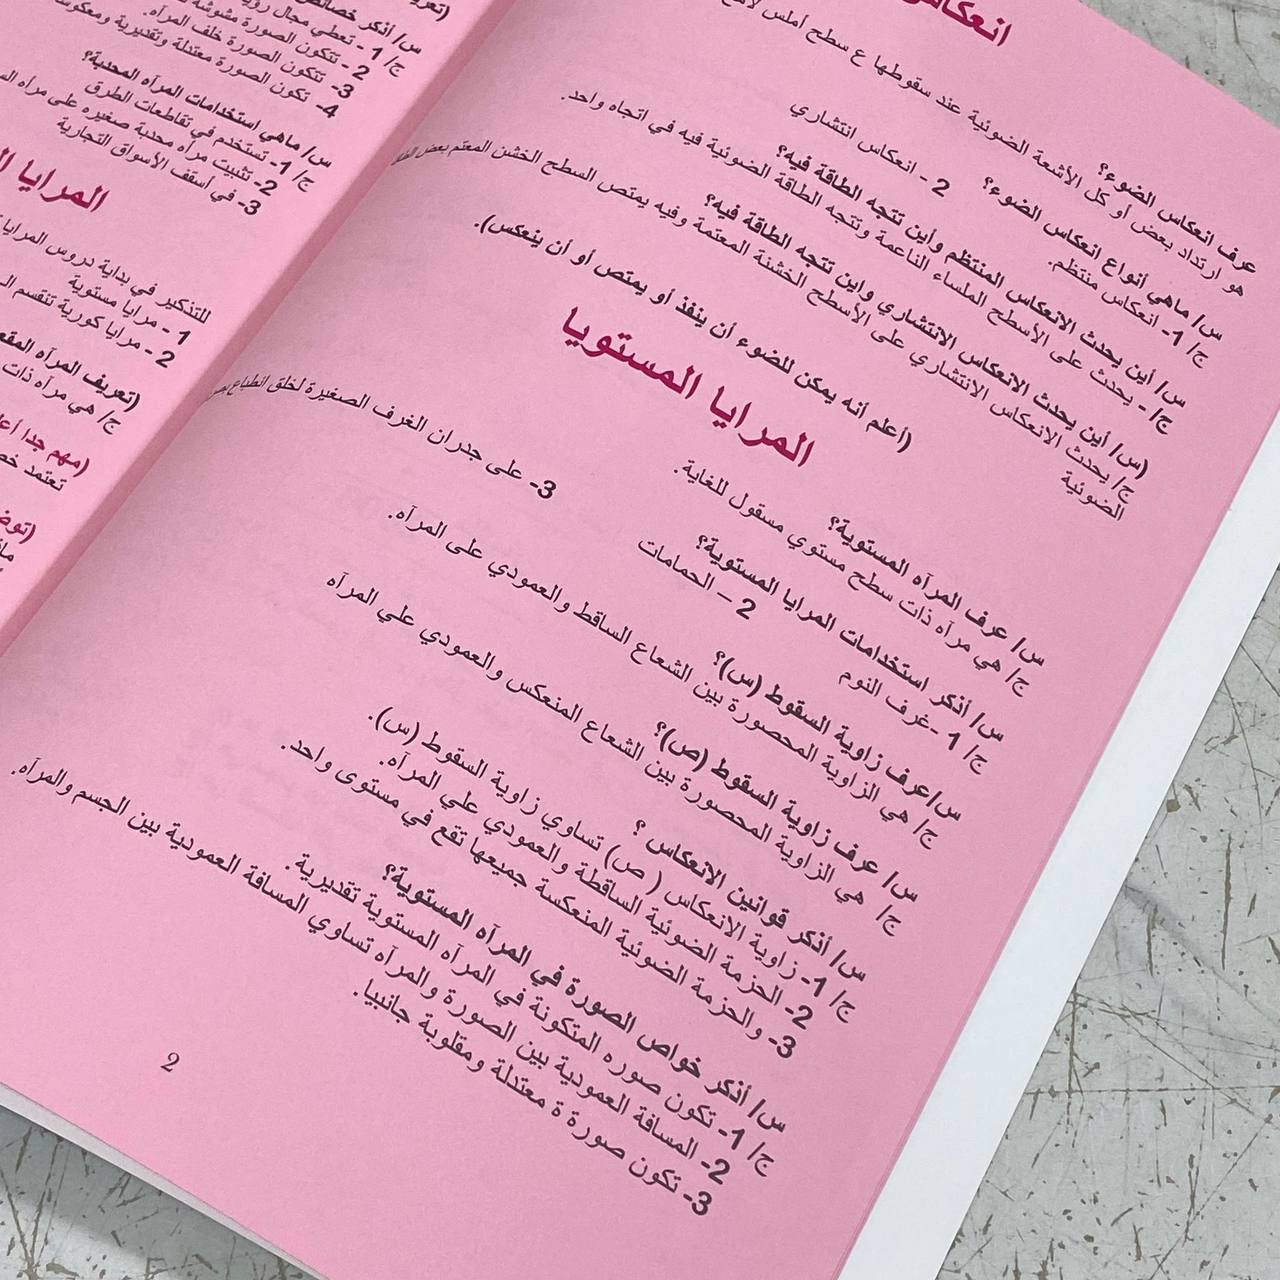 انعكاس
عرف انعكاس الضوء؟
هو ارتداد بعض أو كل الأشعة الضوئية عند سقوطها ع سطح أملس
س/ ماهي أنواع انعكاس الضوء؟
ج/ 1- انعكاس منتظم. 2 - انعكاس انتشاري
س/ أين يحدث الانعكاس المنتظم وأين تتجه الطاقة فيه؟
ج/ - يحدث على الأسطح الملساء الناعمة وتتجه الطاقة الضوئية فيه في اتجاه واحد.
(س/ أين يحدث الانعكاس الانتشاري واين تتجه الطاقة فيه؟
ج/ يحدث الانعكاس الانتشاري على الأسطح الخشنة المعتمة وفيه يمتص السطح الخشن المعتم بعض
الضوئية
(أعلم أنه يمكن للضوء أن ينفذ أو يمتص أو أن ينعكس).
المرايا المستويا
س/ عرف المرآه المستوية؟
ج/ هي مرآه ذات سطح مستوي مسقول للغاية.
س/ أذكر استخدامات المرايا المستوية؟
ج/ 1 -غرف النوم 2 – الحمامات 3- على جدران الغرف الصغيرة لخلق انطباع
س/عرف زاوية السقوط (س)؟
ج/ هي الزاوية المحصورة بين الشعاع الساقط والعمودي على المرآه.
س/ عرف زاوية السقوط (ص)؟
ج/ هي الزاوية المحصورة بين الشعاع المنعكس والعمودي علي المرآه
س/ أذكر قوانين الانعكاس ؟
ج/ 1- زاوية الانعكاس ( ص) تساوي زاوية السقوط (س).
2- الحزمة الضوئية الساقطة والعمودي علي المرآه.
3- والحزمة الضوئية المنعكسة جميعها تقع في مستوى واحد.
س/ أذكر خواص الصورة في المرآه المستوية؟
ج/ 1- تكون صوره المتكونة في المرآه المستوية تقديرية.
2- المسافة العمودية بين الصورة والمرآه تساوي المسافة العمودية بين الجسم والمرآه.
3- تكون صورة ة معتدلة ومقلوبة جانبيا.
2
س/ أذكر خصائص
ج/ 1 - تعطي مجال
2 - تتكون الصورة مشوشة
3- تتكون الصورة خلف المرآه.
4- تكون الصورة معتدلة وتقديرية ومعكوسة
س/ ماهي استخدامات المرآه المحدبة؟
ج/ 1- تستخدم في تقاطعات الطرق
2- تثبيت مرآه محدبة صغيره على مرآه
3- في أسقف الأسواق التجارية
المرايا
للتذكير في بداية دروس المرايا
1 - مرايا مستوية
2 - مرايا كورية تنقسم
(تعريف المرآه
ج/ هي مرآه ذات
(مهم جدا
تعتمد